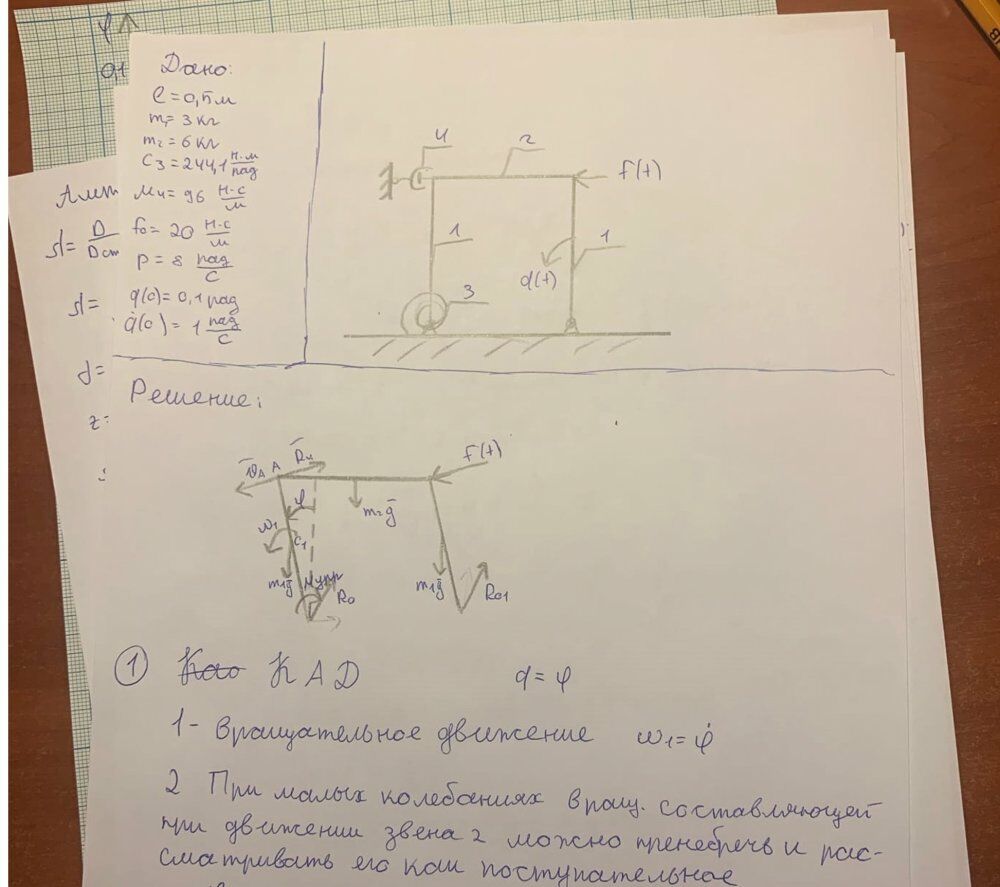 φ
0,1
Дано:
ℓ = 0,5м
m₁ = 3 кг
m₂ = 6 кг
C₃ = 244,1 Н·м/рад
μ₄ = 96 Н·с/м
f₀ = 20 Н·с/м
p = 8 рад/с
q(0) = 0,1 рад
q̇(0) = 1 рад/с
4
2
f(t)
1
1
q(t)
3
d =
d =
z =
Решение:
v̄A A R̄4
F(t)
φ
m₂ḡ
ω₁
C₁
m₁ḡ
Mупр
R0
m₁ḡ
R01
① КАД q = φ
1 - Вращательное движение ω₁ = φ̇
2 При малых колебаниях вращ. составляющей
при движении звена 2 можно пренебречь и рас-
сматривать его как поступательное